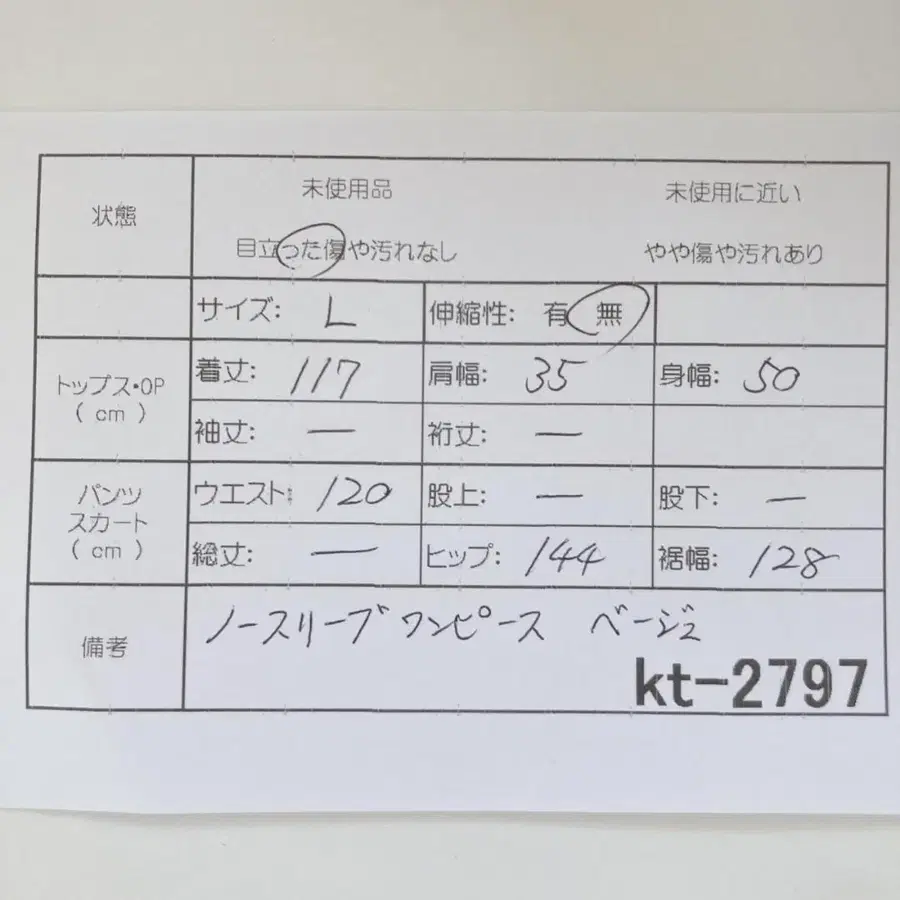 状態
未使用品 未使用に近い
目立った傷や汚れなし やや傷や汚れあり
サイズ: L 伸縮性: 有 無
トップス・OP
( cm )
着丈: 117 肩幅: 35 身幅: 50
袖丈: — 裄丈: —
パンツ
スカート
( cm )
ウエスト: 120 股上: — 股下: —
総丈: — ヒップ: 144 裾幅: 128
備考
ノースリーブワンピース ベージュ
kt-2797